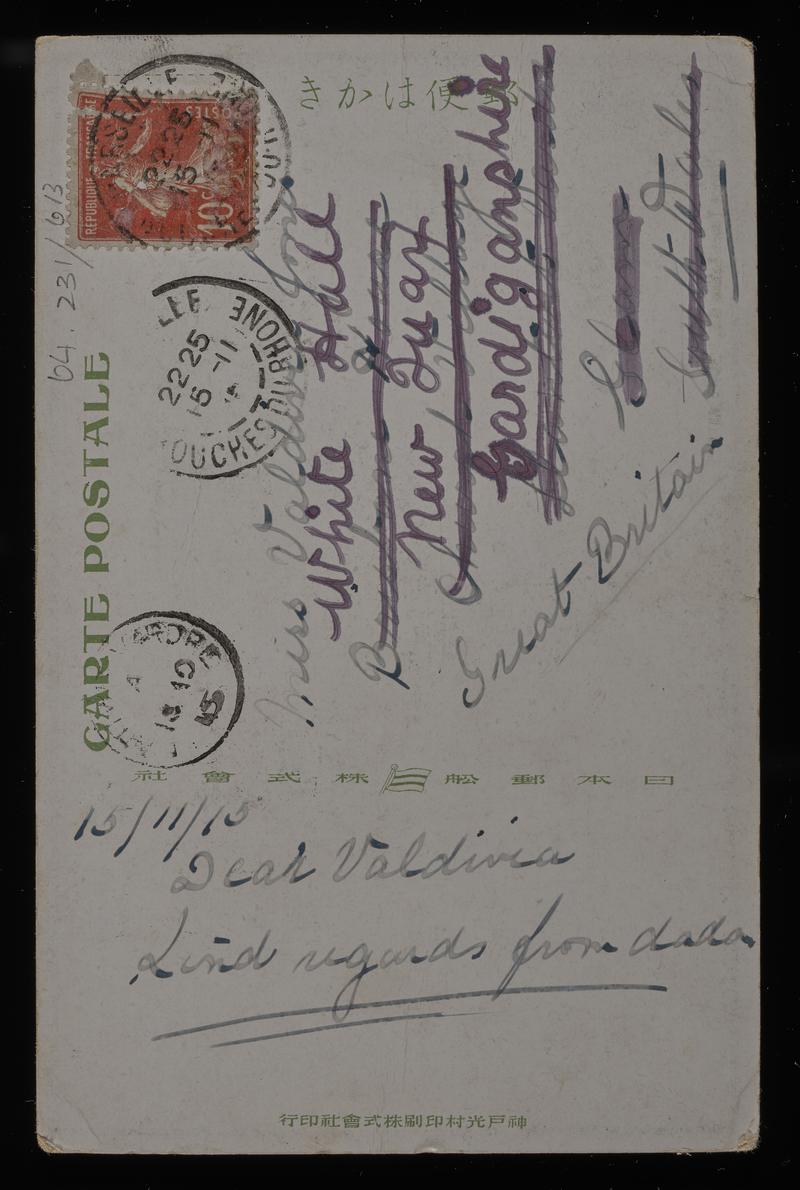 きかは便郵
CARTE POSTALE
64.231/613
RÉPUBLIQUE FRANÇAISE
POSTES
10c
MARSEILLE
22 25
15 -11
BOUCHES DU RHONE
22 25
15 -11
BOUCHES DU RHONE
LLANTWIT FARDRE
A
18 NO
15
Miss Valdivia
White Hall
New Quay
Cardiganshire
Glam
South Wales
Great Britain
社會式株 舩郵本日
15/11/15
Dear Valdivia
Kind regards from dada
行印社會式株刷印村光戸神